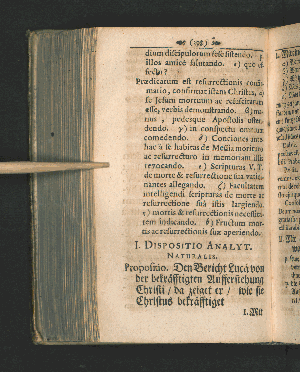 (398)
dium discipulorum sese sistendo.
illos amicè salutando.
Prædicatum est resurrectionis confir-
matio, confirmat istam Christus,
se Jesum mortuum ac resuscitatum
esse, verbis demonstrando. β) ma-
nus, pedesque Apostolis osten-
dendo. γ) in conspectu omnium
comedendo. δ) Conciones inter
hac à se habitas de Messiæ morte
ac resurrectione in memoriam illis
revocando. ε) Scripturas V. T.
de morte & resurrectione sua vatici-
nantes allegando. ζ) Facultatem
intelligendi scripturas de morte ac
resurrectione sua istis largiendo.
η) mortis & resurrectionis necessita-
tem indicando. θ) Fructum mor-
tis ac resurrectionis suæ aperiendo.
I. DISPOSITIO ANALYT.
NATURALIS.
Propositio. Den Bericht Lucä von
der bekräfftigten Aufferstehung
Christi / da zeiget er / wie sie
Christus bekräfftiget
1. Mit